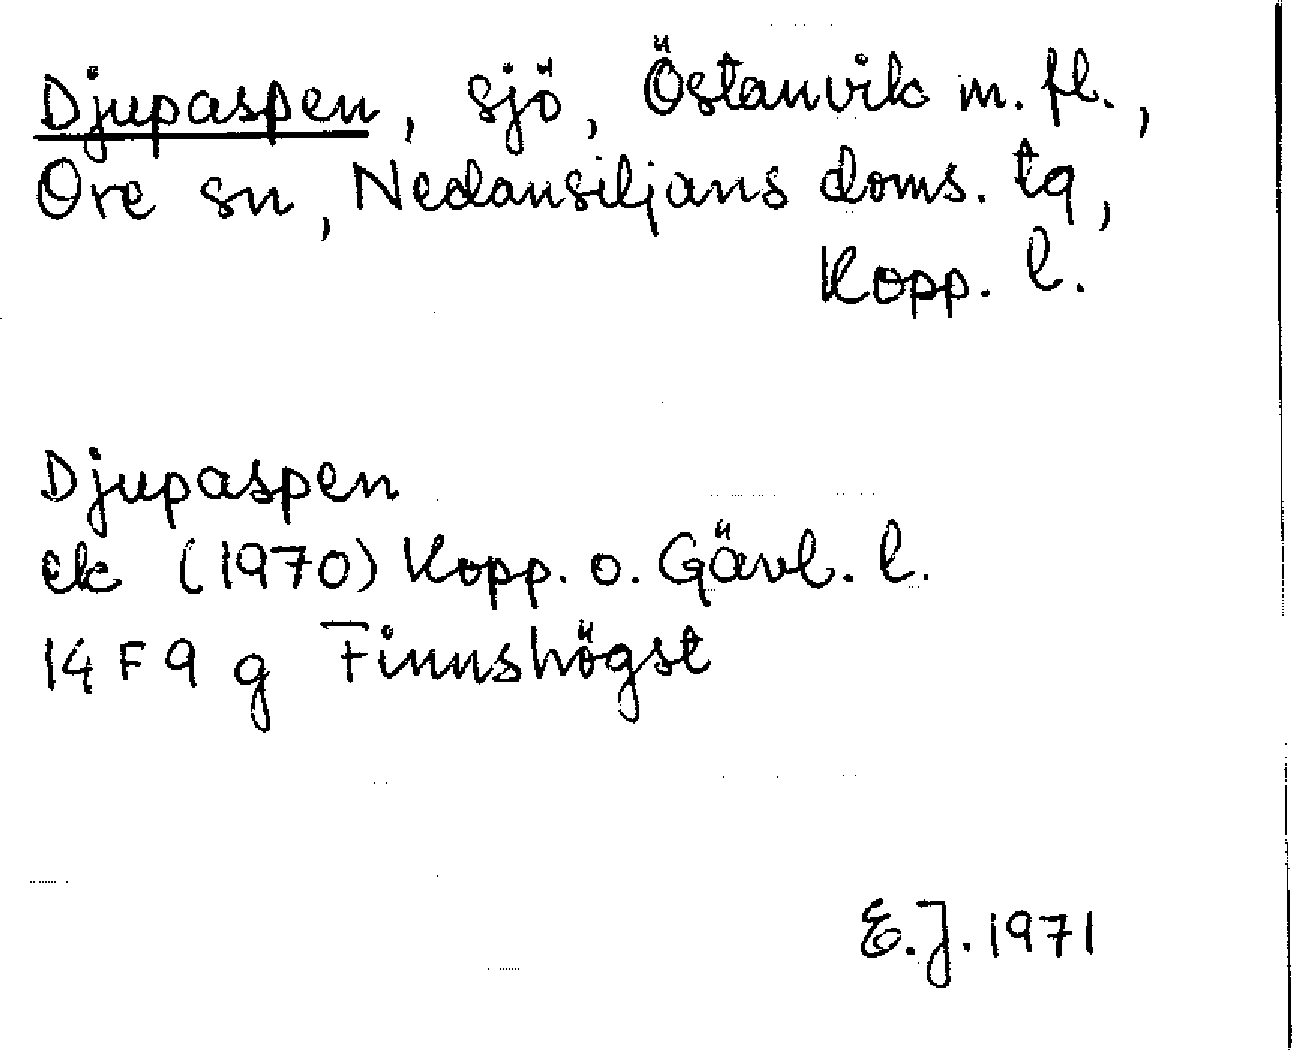 Djupaspen, sjö, Östanvik m. fl.,
Ore sn, Nedansiljans doms. tg,
Kopp. l.
Djupaspen
ek (1970) Kopp. o. Gävl. l.
14 F 9 g Finnshögst
E.J. 1971